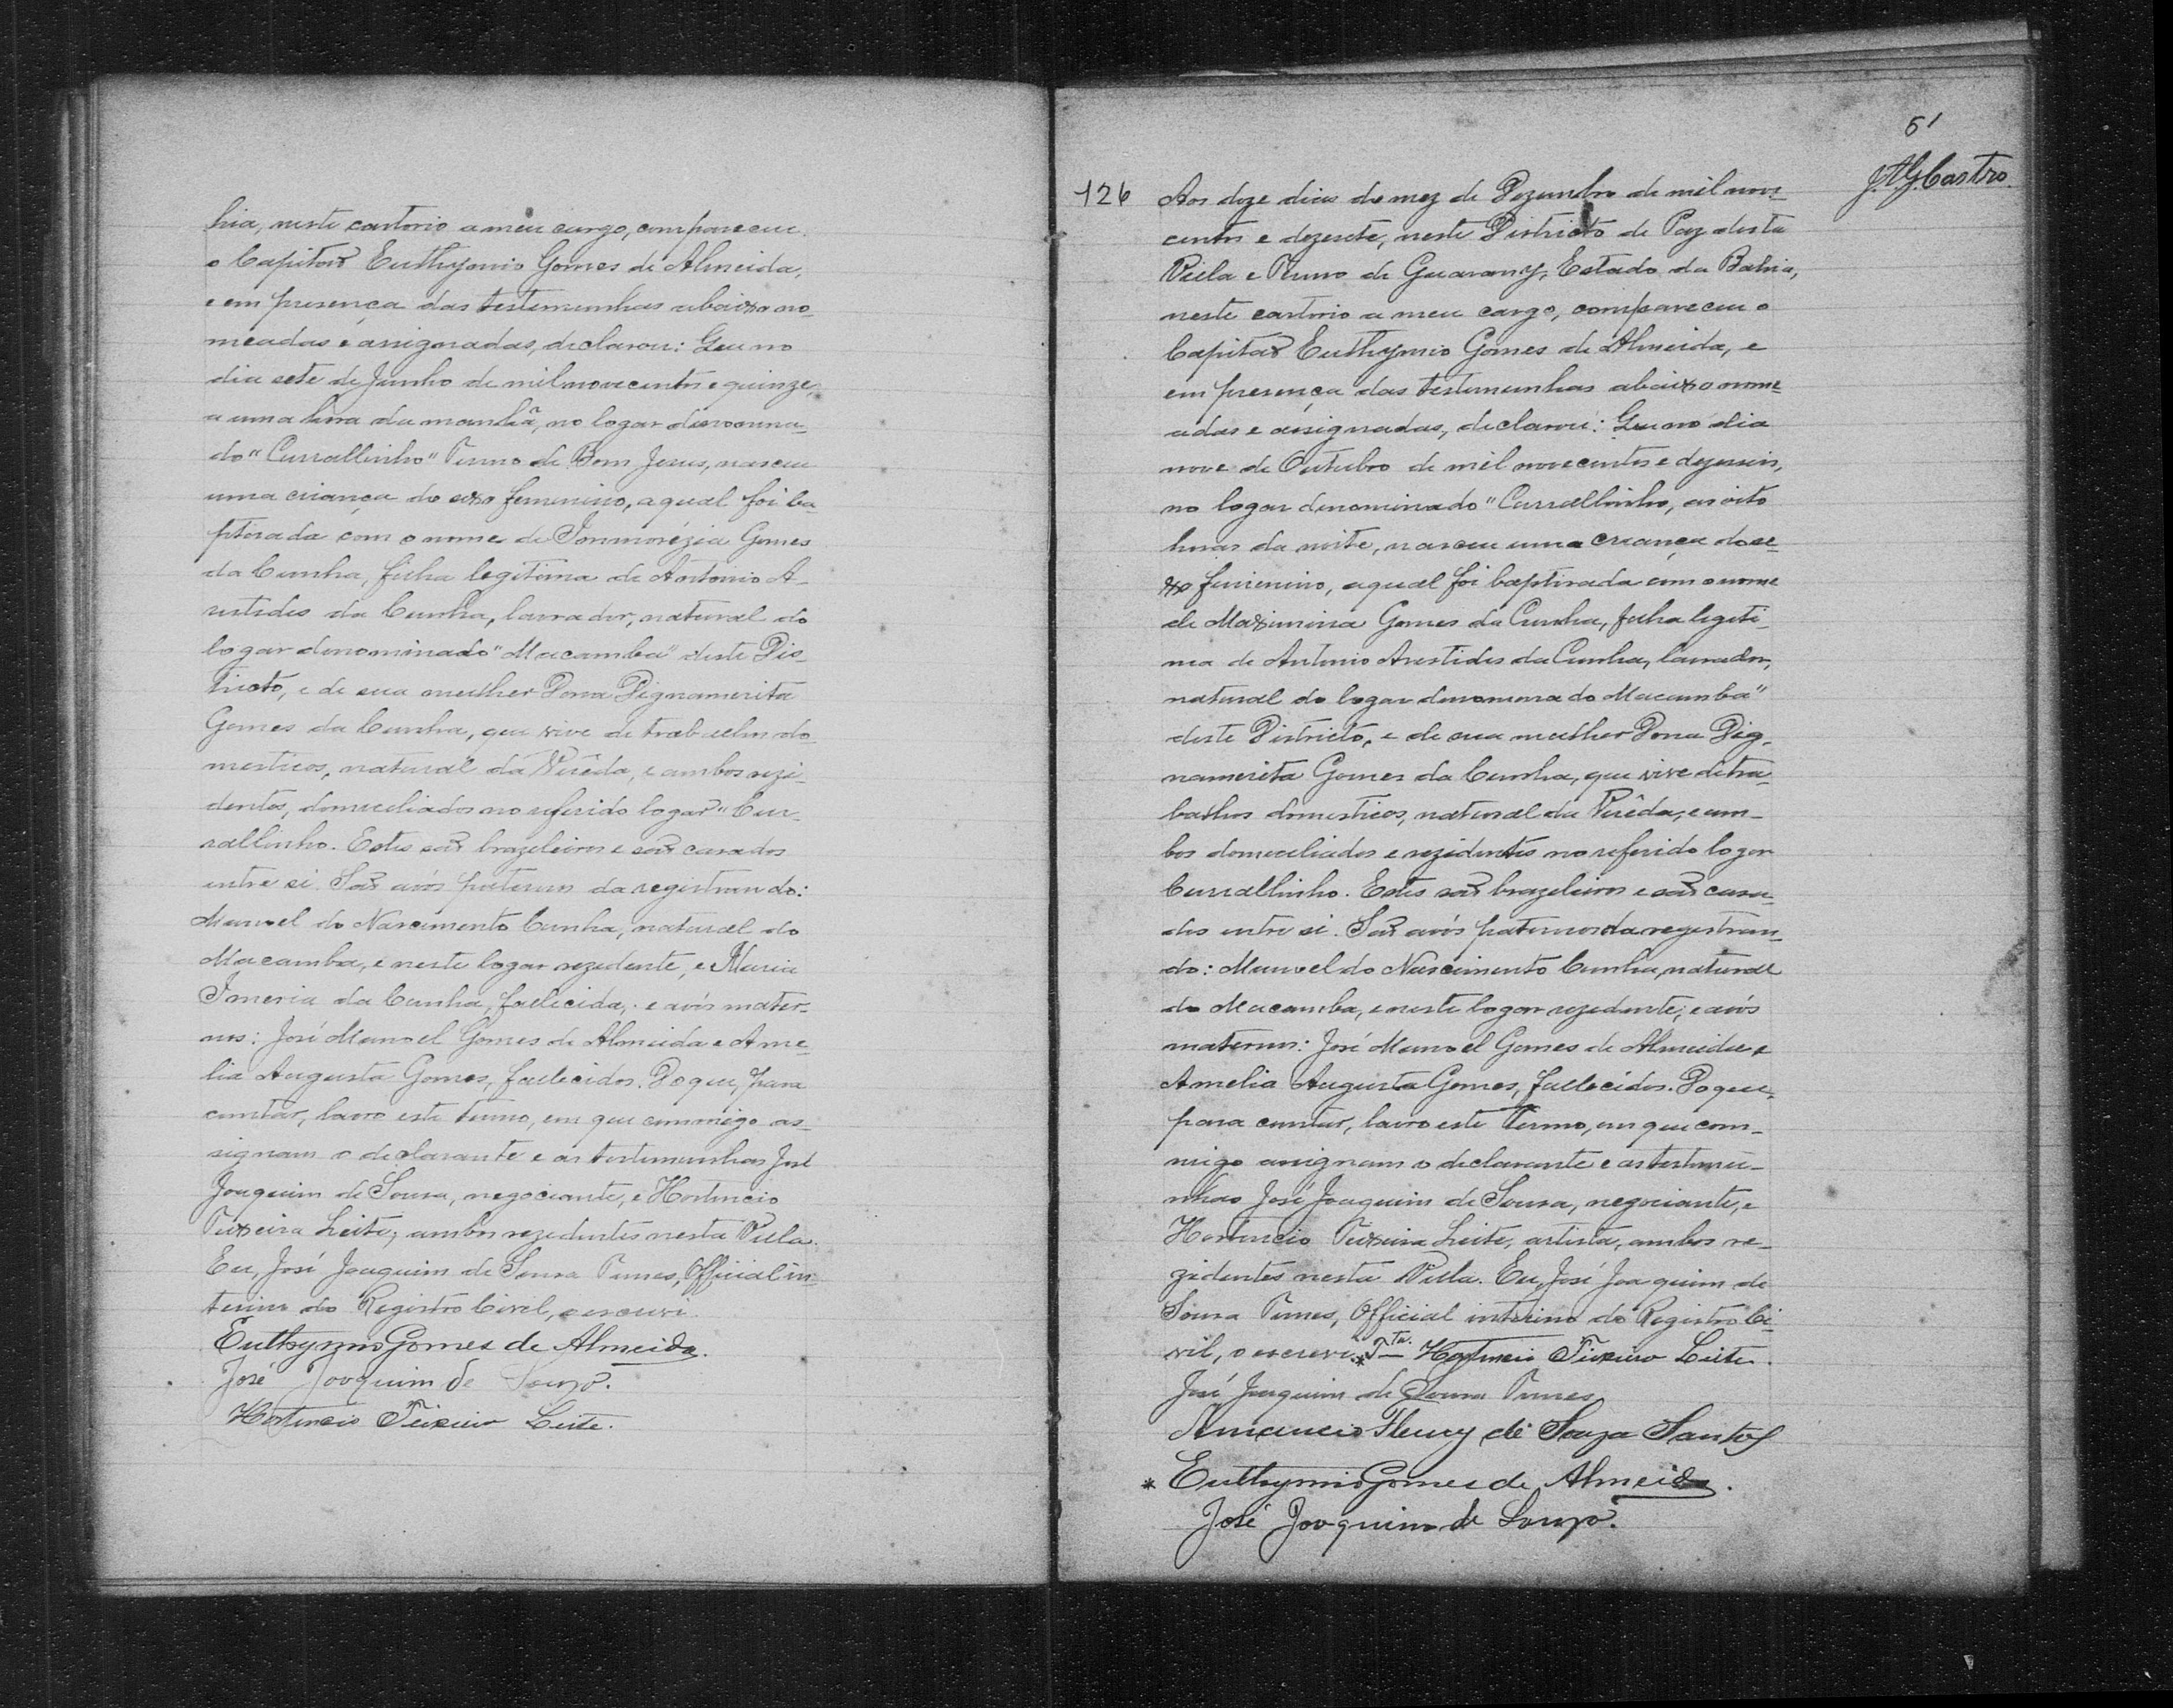 hia, neste cartorio a meu cargo, compareceu
o Capitão Euthymio Gomes de Almeida,
e em presença das testemunhas abaixo no-
meadas e assignadas, declarou: Que no
dia sete de Junho de mil novecentos e quinze,
a uma hora da manhã, no logar denomina-
do "Currallinho" Termo de Bom Jesus, nasceu
uma criança do sexo feminino, a qual foi ba-
ptisada com o nome de Gomes
da Cunha, filha legitima de Antonio A-
ristides da Cunha, lavrador, natural do
logar denominado "Macamba" deste Dis-
tricto, e de sua mulher Dona Dignamerita
Gomes da Cunha, que vive de trabalhos do-
mesticos, natural da Verêda, e ambos rezi-
dentes, domiciliados no referido logar "Cur-
rallinho. Estes são brazileiros e são casados
entre si. São avós paternos da registrando:
Manoel do Nascimento Cunha, natural do
Macamba, e neste logar rezidente, e Maria
Imeria da Cunha, fallecida; e avós mater-
nos: José Manoel Gomes de Almeida e Ame-
lia Augusta Gomes, fallecidos. Do que, para
constar, lavro este termo, em que commigo as-
signam o declarante e as testemunhas José
Joaquim de Sousa, negociante, e Hortencio
Teixeira Leite, ambos rezidentes nesta Villa.
Eu, José Joaquim de Sousa Tunes, Official in-
terino do Registro Civil, o escrevi.
Euthymio Gomes de Almeida.
José Joaquim de Souza.
Hortencio Teixeira Leite.
51
J.A.G. Castro.
126 Aos doze dias do mez de Dezembro de mil nove-
centos e dezesete, neste Districto de Paz desta
Villa e Termo de Guarany, Estado da Bahia,
neste cartorio a meu cargo, compareceu o
Capitão Euthymio Gomes de Almeida, e
em presença das testemunhas abaixo nome-
adas e assignadas, declarou: Que no dia
nove de Outubro de mil novecentos e dezeseis,
no logar denominado "Currallinho, as oito
horas da noite, nasceu uma criança do se-
xo feminino, a qual foi baptisada com o nome
de Maximina Gomes da Cunha, filha legiti-
ma de Antonio Arestides da Cunha, lavrador,
natural do logar denominado Macamba"
deste Districto, e de sua mulher Dona Dig-
namerita Gomes da Cunha, que vive de tra-
balhos domesticos, natural da Verêda, e am-
bos domiciliados e rezidentes no referido logar
Currallinho. Estes são brazileiros e são casa-
dos entre si. São avós paternos da registran-
do: Manoel do Nascimento Cunha, natural
do Macamba, e neste logar rezidente; e avós
maternos: José Manoel Gomes de Almeida e
Amelia Augusta Gomes, fallecidos. Do que,
para constar, lavro este termo, em que com-
migo assignam o declarante e as testemu-
nhas José Joaquim de Sousa, negociante, e
Hortencio Teixeira Leite, artista, ambos re-
zidentes nesta Villa. Eu, José Joaquim de
Sousa Tunes, Official interino do Registro Ci-
vil, o escrevi.* Tta. Hortencio Teixeira Leite.
José Joaquim de Sousa Tunes
Amancio Fleury de Souza Santos
* Euthymio Gomes de Almeida.
José Joaquim de Souza.